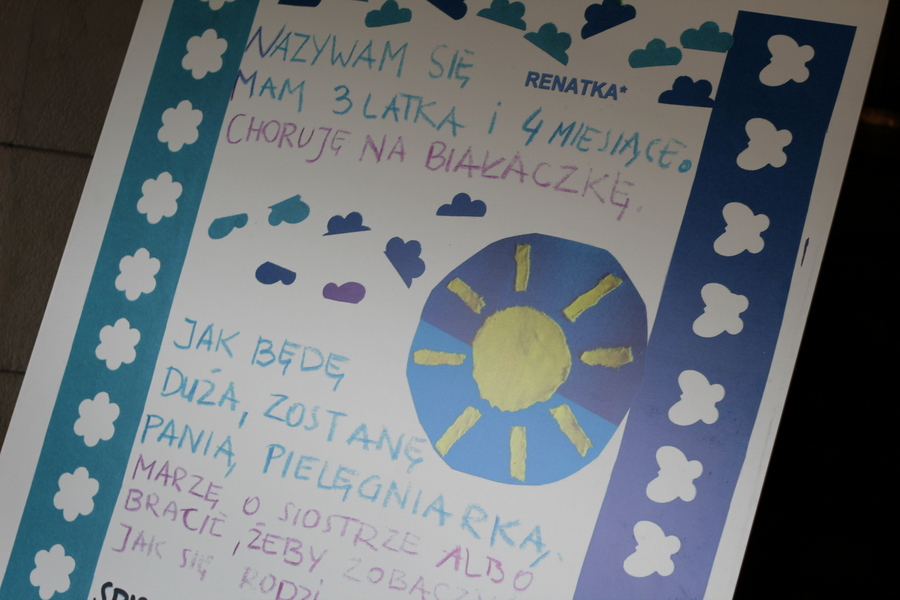 NAZYWAM SIĘ
RENATKA*
MAM 3 LATKA i 4 MIESIĄCE.
CHORUJĘ NA BIAŁACZKĘ.
JAK BĘDĘ
DUŻA, ZOSTANĘ
PANIĄ, PIELĘGNIARKĄ,
MARZĘ O SIOSTRZE ALBO
BRACIE, ŻEBY ZOBACZY
JAK SIĘ RODZI